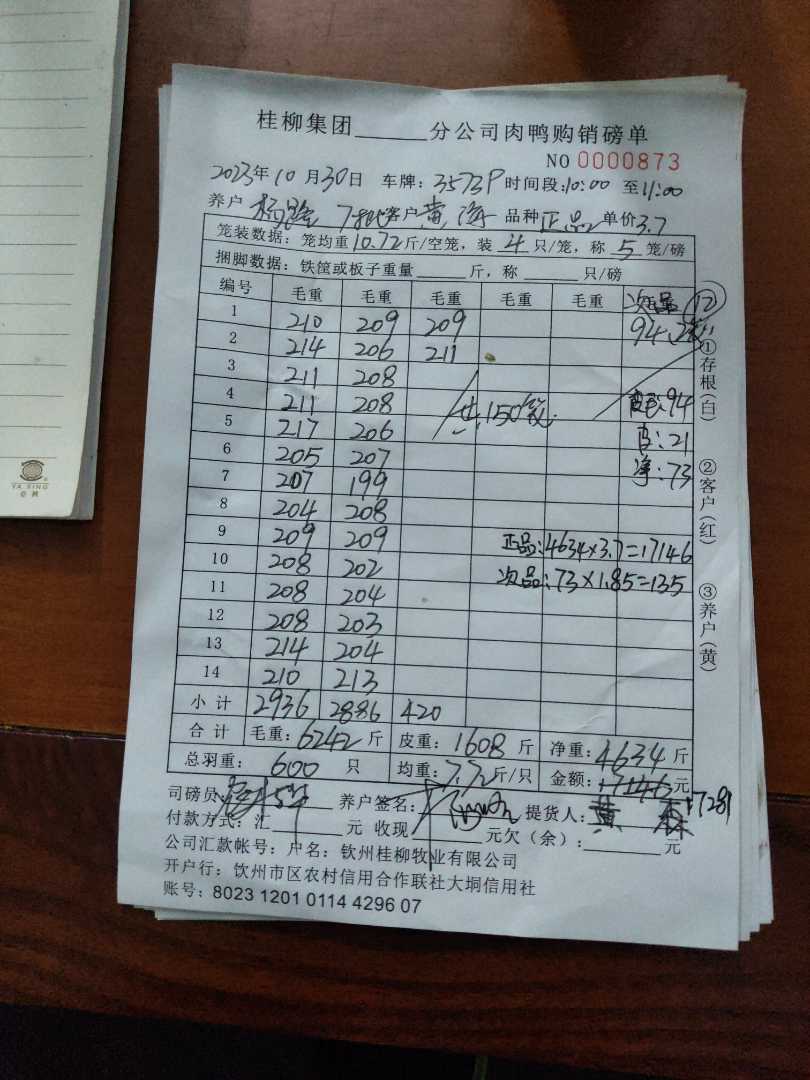 桂柳集团______分公司肉鸭购销磅单
NO 0000873
2023年10月30日 车牌:3573P 时间段:10:00 至11:00
养户 杨 7批 客户 黄 品种 正品 单价3.7
笼装数据:笼均重10.72斤/空笼,装 4 只/笼,称 5 笼/磅
捆脚数据:铁筐或板子重量______斤,称______只/磅
编号 毛重 毛重 毛重 毛重 毛重 次品 12
1 210 209 209 94
2 214 206 211
3 211 208
4 211 208 共150笼 毛:94
5 217 206 皮:21
6 205 207 净:73
7 207 199
8 204 208
9 209 209 正品:4634×3.7=17146
10 208 202 次品:73×1.85=135
11 208 204
12 208 203
13 214 204
14 210 213
小计 2936 2886 420
合计 毛重:6242斤 皮重:1608斤 净重:4634斤
总羽重:600 只 均重:7.72斤/只 金额:17146元
17281
司磅员: 养户签名: 提货人:黄 森
付款方式:汇______元 收现______元欠(余):______元
公司汇款帐号:户名:钦州桂柳牧业有限公司
开户行:饮州市区农村信用合作联社大垌信用社
账号:8023 1201 0114 4296 07
①存根(白) ②客户(红) ③养户(黄)
YA XING